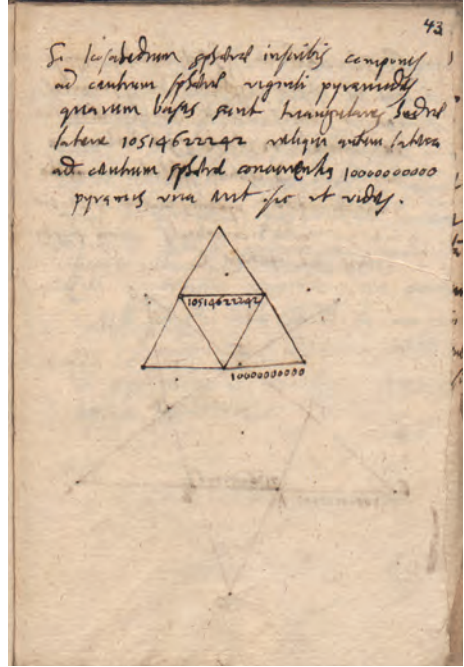 43
Si Icosahedrum sphæræ inscribis componis
ad centrum sphæræ viginti pyramides
quarum bases sunt triangulares hedræ
latere 10514622242 reliqui autem latera
ad centrum sphæræ concurrentia 10000000000
pyramis una erit sic ut vides.
10514622242
10000000000